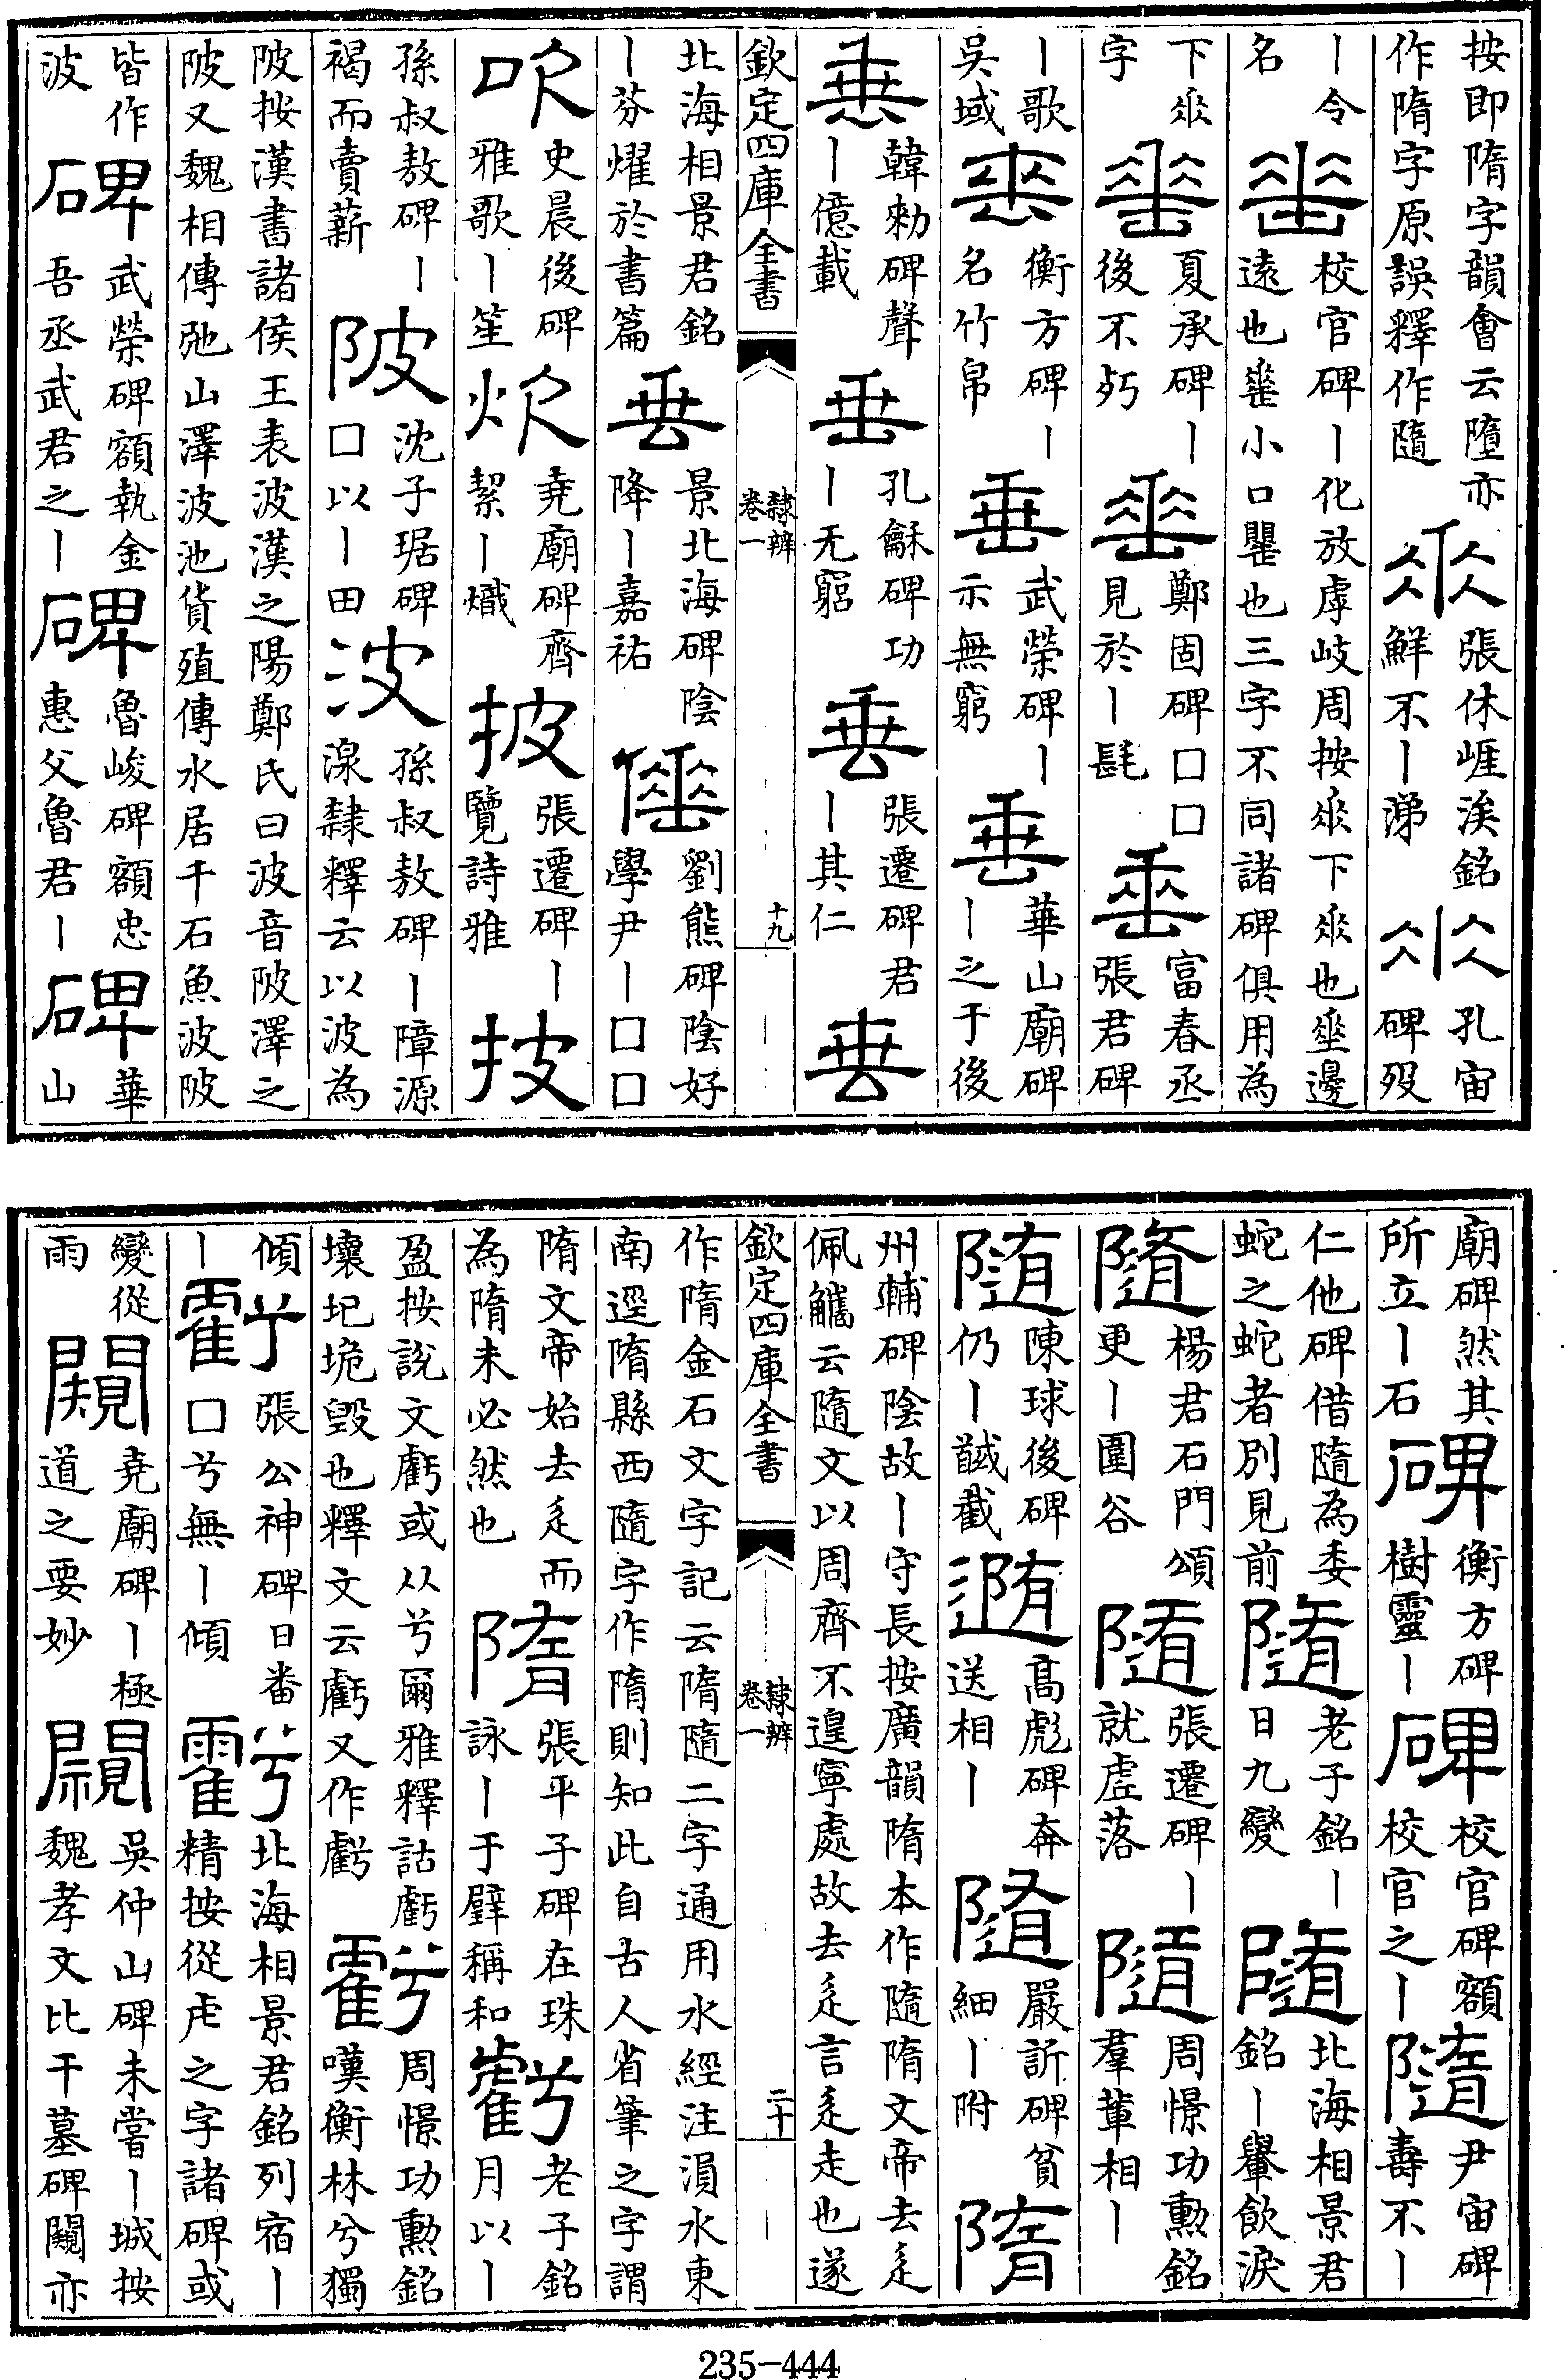 按即隋字韻會云墮亦作隋字原誤釋作隨 𠂹 張休崕涘銘鮮不丨涕 𠂹 孔宙碑歿
丨令名 垂 校官碑丨化放虖岐周按𠂹下𠂹也垂邊遠也㽅小口罌也三字不同諸碑俱用為
下𠂹字 垂 夏承碑丨後不朽 垂 鄭固碑口口見於丨髦 垂 富春丞張君碑
丨歌吳域 垂 衡方碑丨名竹帛 垂 武榮碑丨示無窮 垂 華山廟碑丨之于後
垂 韓勑碑聲丨億載 垂 孔龢碑功丨无窮 垂 張遷碑君丨其仁 垂
欽定四庫全書 隸辨 卷一 十九
北海相景君銘丨芬燿於書篇 垂 景北海碑陰降丨嘉祐 倕 劉熊碑陰好學尹丨口口
吹 史晨後碑雅歌丨笙 炊 堯廟碑齊絜丨熾 披 張遷碑丨覽詩雅 披
孫叔敖碑丨褐而賣薪 陂 沈子琚碑口以丨田 波 孫叔敖碑丨障源湶隸釋云以波為
陂按漢書諸侯王表波漢之陽鄭氏曰波音陂澤之陂又魏相傳弛山澤波池貨殖傳水居千石魚波陂
皆作波 碑 武榮碑額執金吾丞武君之丨 碑 魯峻碑額忠惠父魯君丨 碑 華山
廟碑然其所立丨石 碑 衡方碑樹靈丨 碑 校官碑額校官之丨 隨 尹宙碑壽不丨
仁他碑借隨為委蛇之蛇者別見前 隨 老子銘丨日九變 隨 北海相景君銘丨轝飲淚
隨 楊君石門頌更丨圍谷 隨 張遷碑丨就虛落 隨 周憬功勳銘羣輩相丨
隨 陳球後碑仍丨馘截 隨 高彪碑奔送相丨 隨 嚴訢碑貧細丨附 隋
州輔碑陰故丨守長按廣韻隋本作隨隋文帝去辵佩觿云隨文以周齊不遑寧處故去辵言辵走也遂
欽定四庫全書 隸辨 卷一 二十
作隋金石文字記云隋隨二字通用水經注溳水東南逕隋縣西隨字作隋則知此自古人省筆之字謂
隋文帝始去辵而為隋未必然也 隋 張平子碑在珠詠丨于璧稱和 虧 老子銘月以丨
盈按說文虧或从兮爾雅釋詁虧壞圮垝毀也釋文云虧又作𧇾 虧 周憬功勳銘嘆衡林兮獨
傾丨 虧 張公神碑日番口兮無丨傾 虧 北海相景君銘列宿丨精按從虍之字諸碑或
變從雨 闚 堯廟碑丨極道之要妙 闚 吳仲山碑未嘗丨城按魏孝文比干墓碑闚亦
235-444